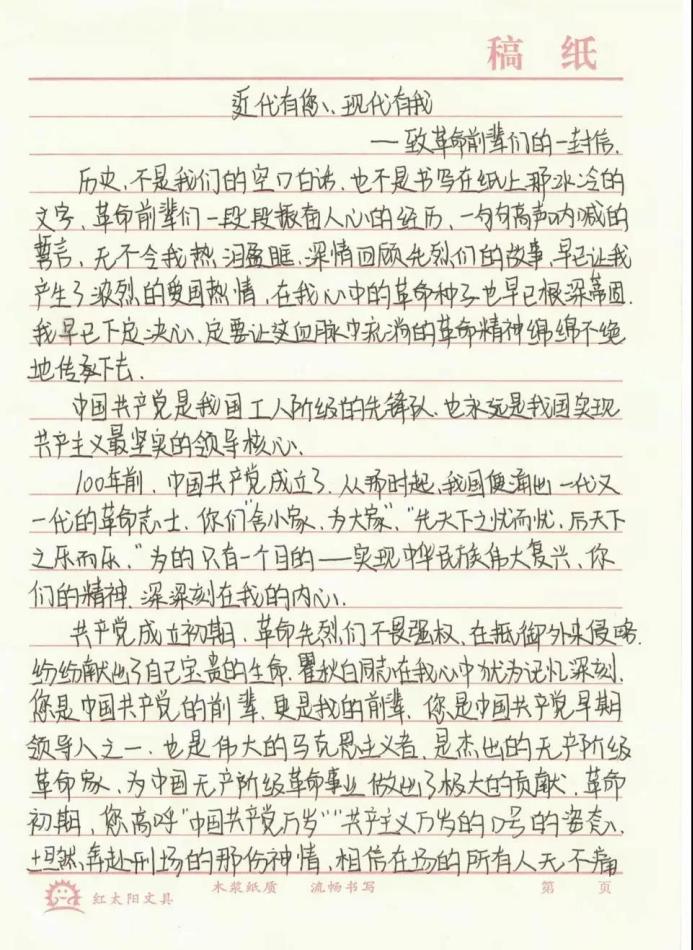 稿 纸
近代有您、现代有我
——致革命前辈们的一封信.
历史,不是我们的空口白话,也不是书写在纸上那冰冷的
文字,革命前辈们一段段振奋人心的经历,一句句高声呐喊的
誓言,无不令我热泪盈眶,深情回顾先烈们的故事,早已让我
产生了浓烈的爱国热情,在我心中的革命种子也早已根深蒂固.
我早已下定决心,定要让这血脉中流淌的革命精神绵绵不绝
地传承下去.
中国共产党是我国工人阶级的先锋队,也永远是我国实现
共产主义最坚实的领导核心.
100年前,中国共产党成立了.从那时起,我国便涌出一代又
一代的革命志士,你们“舍小家,为大家”,“先天下之忧而忧,后天下
之乐而乐,”为的只有一个目的——实现中华民族伟大复兴,你
们的精神,深深刻在我的内心.
共产党成立初期,革命先烈们不畏强权,在抵御外来侵略.
纷纷献出了自己宝贵的生命.瞿秋白同志在我心中尤为记忆深刻.
您是中国共产党的前辈,更是我的前辈,您是中国共产党早期
领导人之一,也是伟大的马克思主义者,是杰出的无产阶级
革命家,为中国无产阶级革命事业做出了极大的贡献,革命
初期,您高呼“中国共产党万岁”“共产主义万岁的口号的姿态,
坦然奔赴刑场的那份神情,相信在场的所有人无不痛
红太阳文具 木浆纸质 流畅书写 第 页